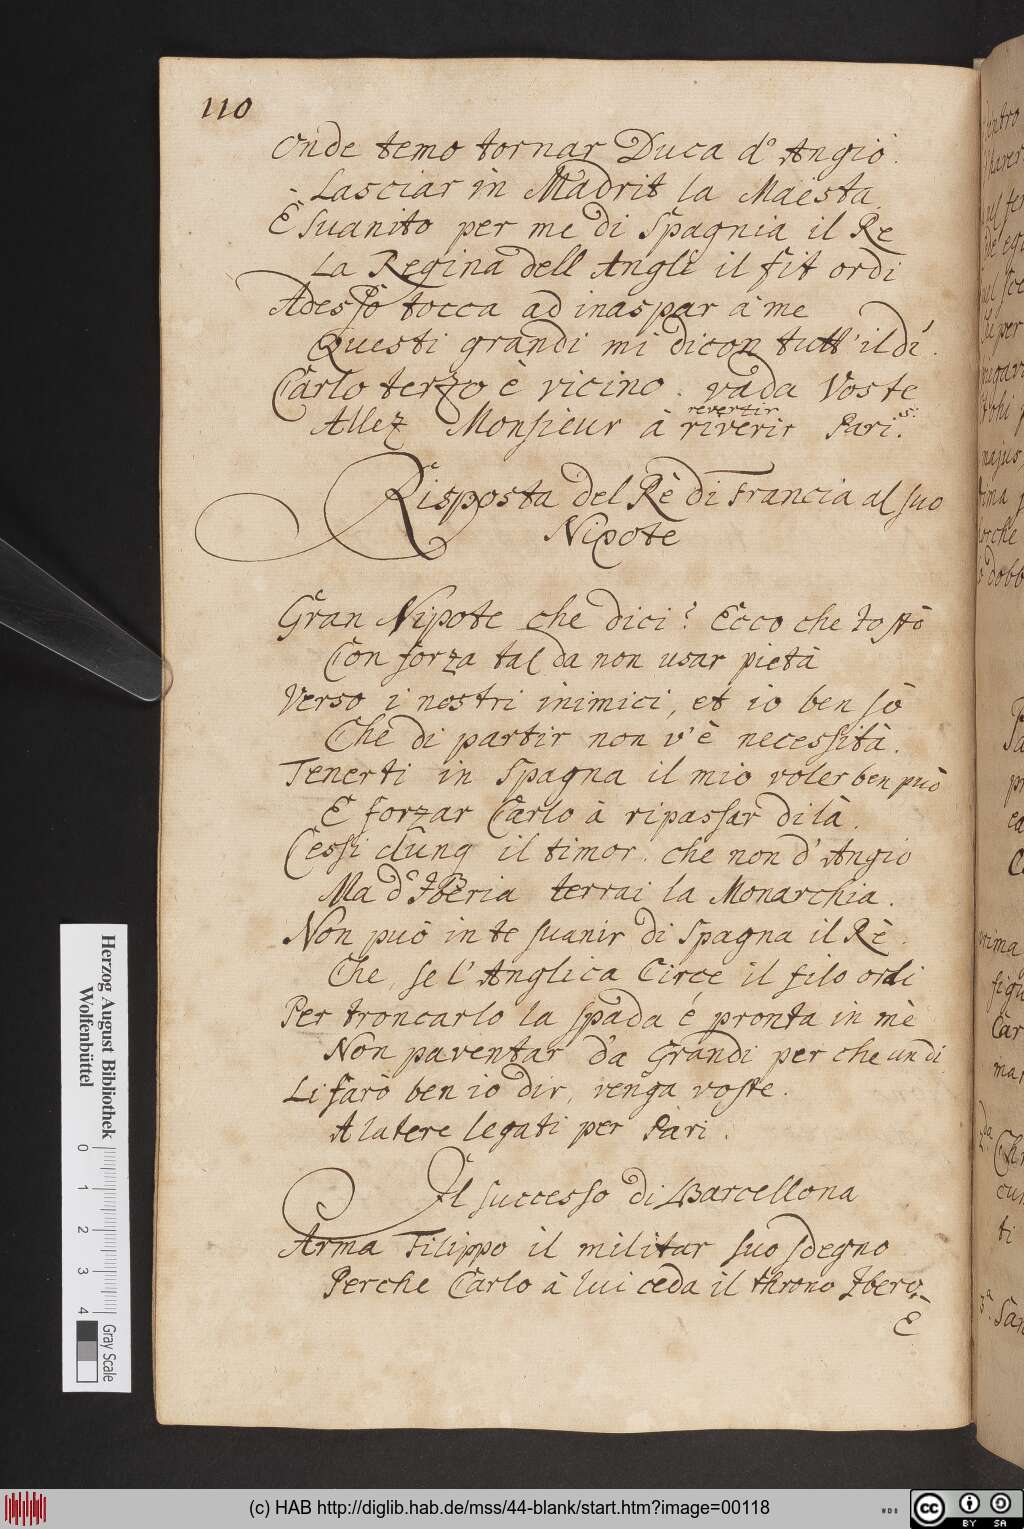 110
Onde temo tornar Duca d'Angiò.
Lasciar in Madrit la Maësta.
È suanito per me di Spagnia il Re
La Regina dell Angli il fit ordi
Adesso tocca ad inaspar à me
Questi grandi mi dicon tutt'il dì.
Carlo terzo è vicino. vada Voste
revertir
Allez Monsieur à riverir Pari.s:
Risposta del Rè di Francia al suo
Nipote
Gran Nipote che dici? Ecco che tostò
Con forza tal da non usar pietà
Verso i nostri inimici, et io ben sò
Che di partir non v'è necessità.
Tenerti in Spagna il mio voler ben può
E forzar Carlo à ripassar di là.
Cessi dunq il timor. che non d'Angio
Ma d'Iberia terrai la Monarchia.
Non può in te suanir di Spagna il Rè.
Che, se l'Anglica Circe il filo ordi
Per troncarlo la spada é pronta in mè
Non paventar da Grandi per che un di
Li farò ben io dir, venga voste.
A latere legati per Pari.
Il successo di Barcellona
Arma Filippo il militar suo sdegno
Perche Carlo à lui ceda il throno Ibero,
È
Herzog August Bibliothek
Wolfenbüttel
0 1 2 3 4
Gray Scale
(c) HAB http://diglib.hab.de/mss/44-blank/start.htm?image=00118
WDB
cc BY SA